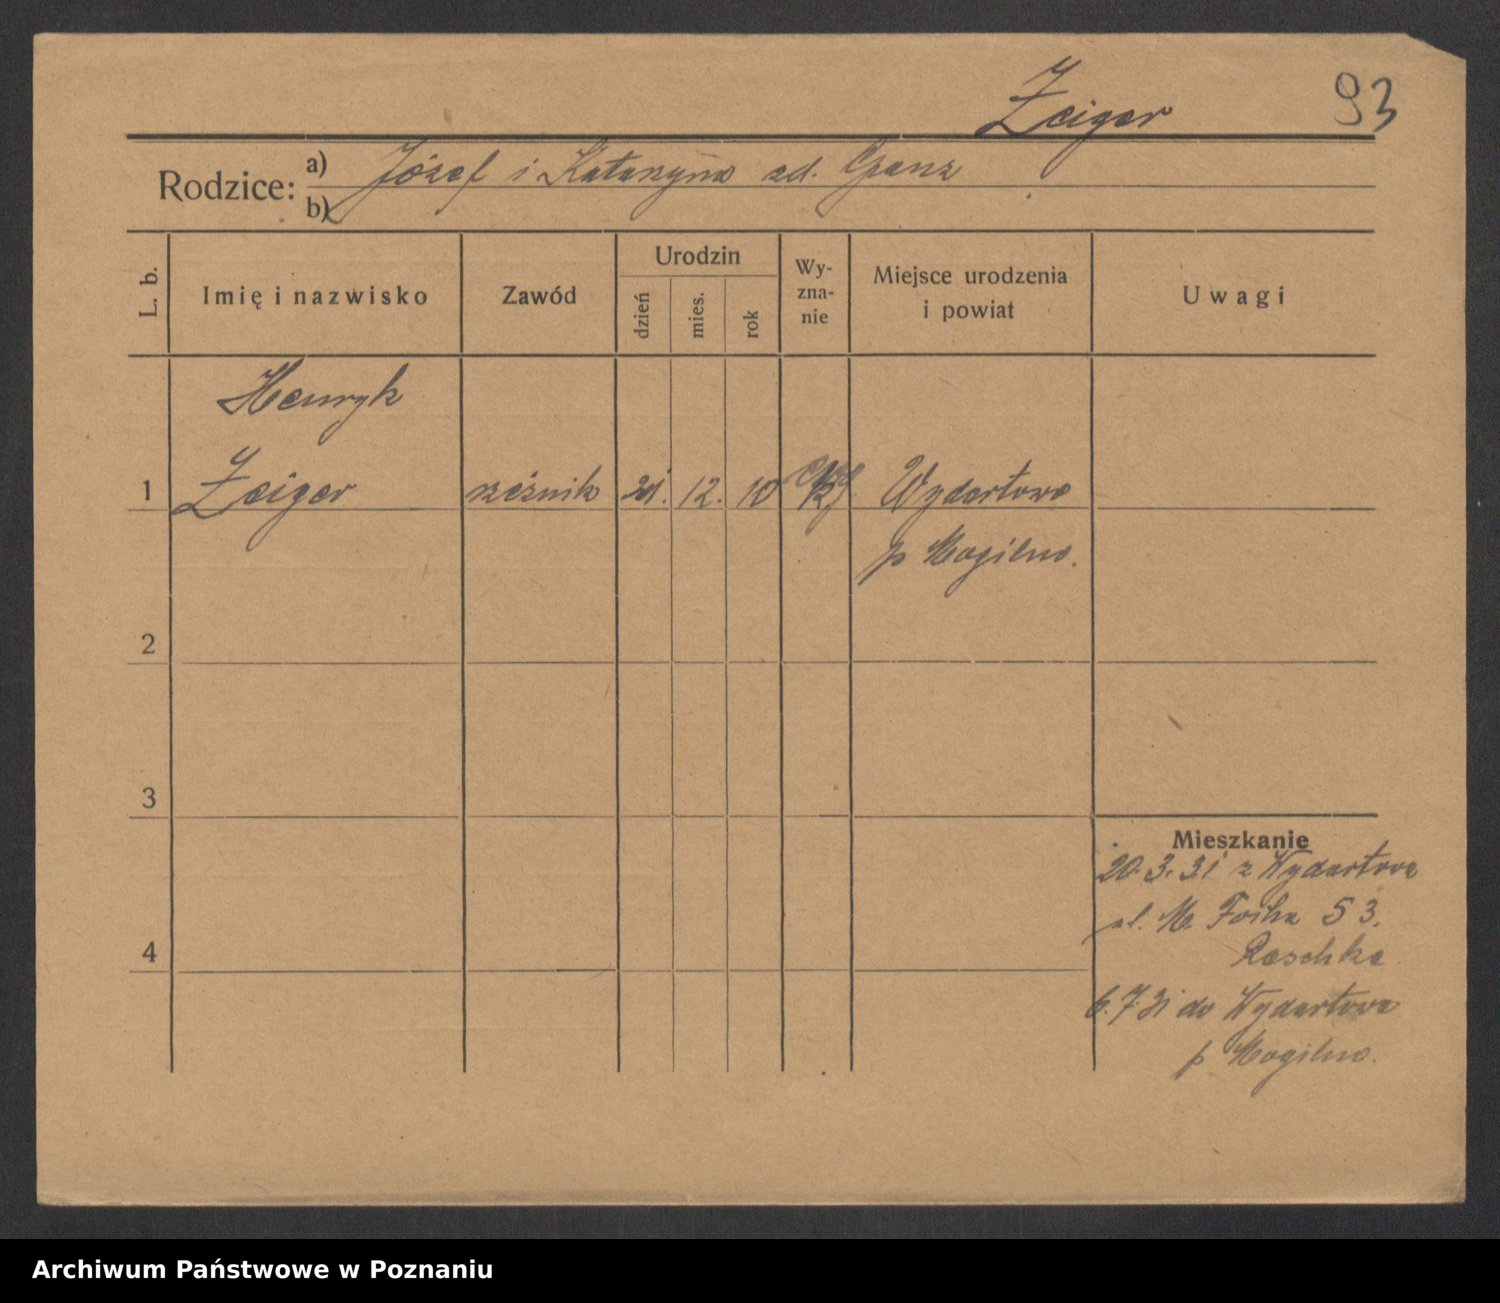 Zeiger 93
Rodzice: a) Józef i Katarzyna zd.
b)
L. b. Imię i nazwisko Zawód Urodzin dzień mies. rok Wy-zna-nie Miejsce urodzenia i powiat Uwagi
Henryk
1 Zeiger rzeźnik 21. 12. 10 Wydartowo
p Mogilno.
2
3
Mieszkanie
20.3.31 z Wydartowa
ul. M. Focha 53.
Raschke
4
6.7.31 do Wydartowa
p Mogilno.
Archiwum Państwowe w Poznaniu